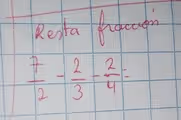 Resta fracción
7/2 - 2/3 - 2/4 =